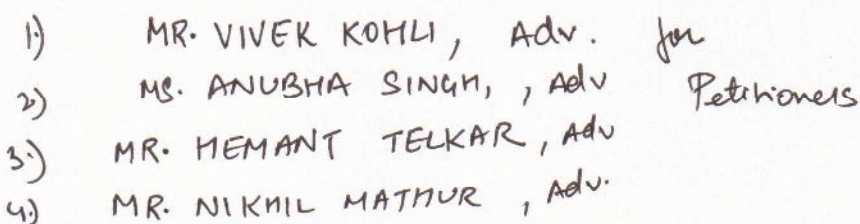 1) MR. VIVEK KOHLI, Adv. for
2) MS. ANUBHA SINGH, , Adv Petitioners
3.) MR. HEMANT TELKAR, Adv
4.) MR. NIKHIL MATHUR , Adv.